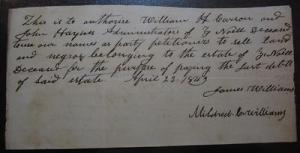 This is to authorise William H Carson and
John Haynes Administrators of Z Neill Deceased
use our names as party petitioners to sell Land
and negros belonging to the estate of Z. Neill
Deceased for the purpose of paying the just debts
of said estate April 22 1843
James Williams
Mildred Williams